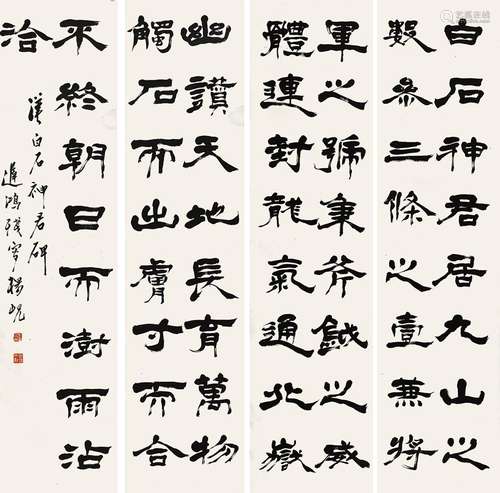 白石神君居九山之
數參三條之壹兼將
軍之號秉斧鉞之威
體連封龍氣通北嶽
幽讚天地長育萬物
觸石而出膚寸而合
不終朝日而澍雨沾
洽
漢白石神君碑
遲鴻殘客楊峴